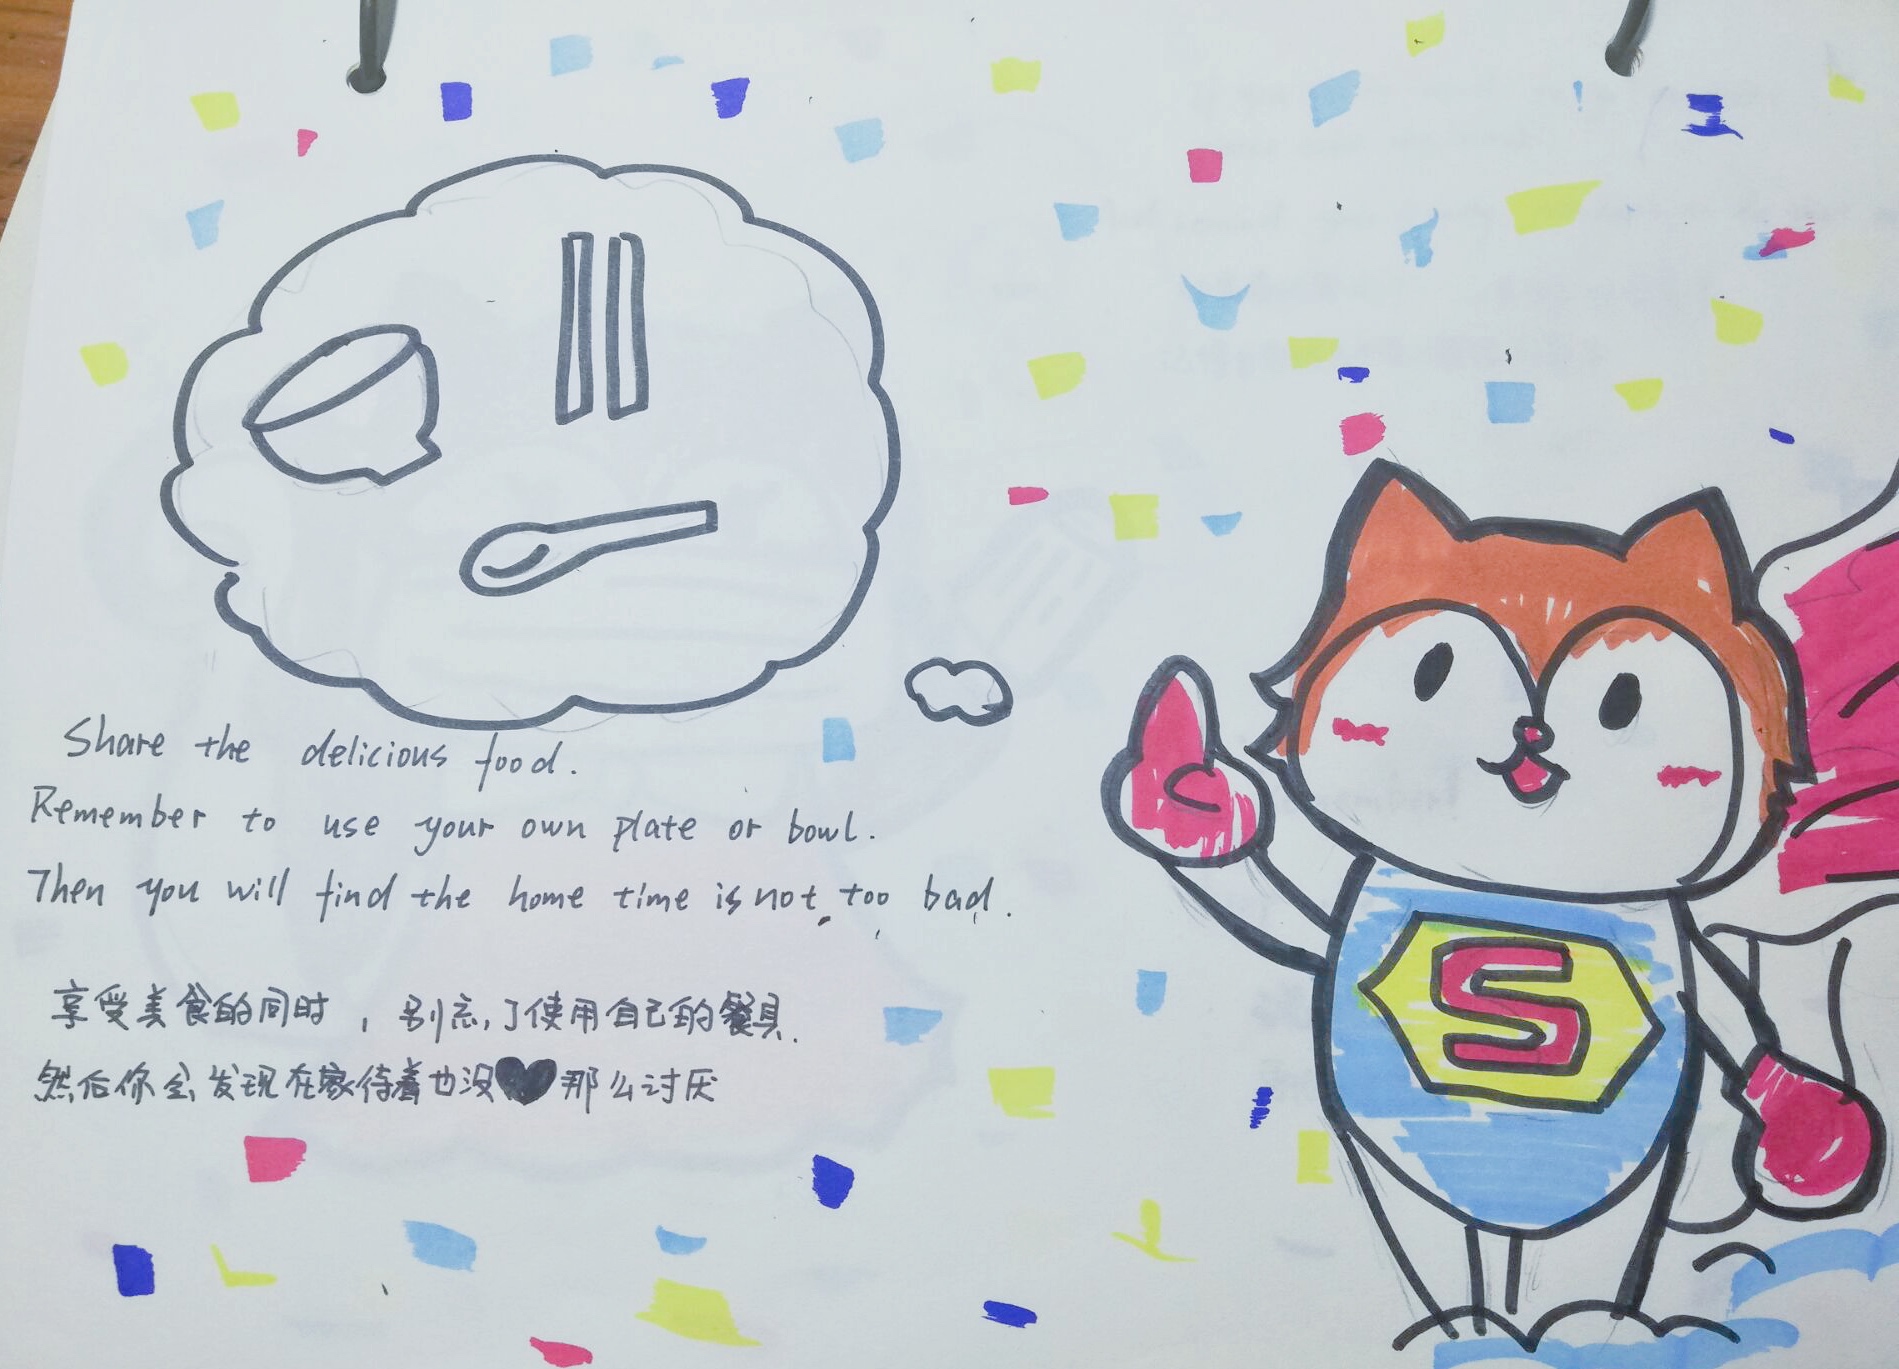 Share the delicious food.
Remember to use your own plate or bowl.
Then you will find the home time is not too bad.
享受美食的同时，别忘了使用自己的餐具.
然后你会发现在家待着也没那么讨厌
S